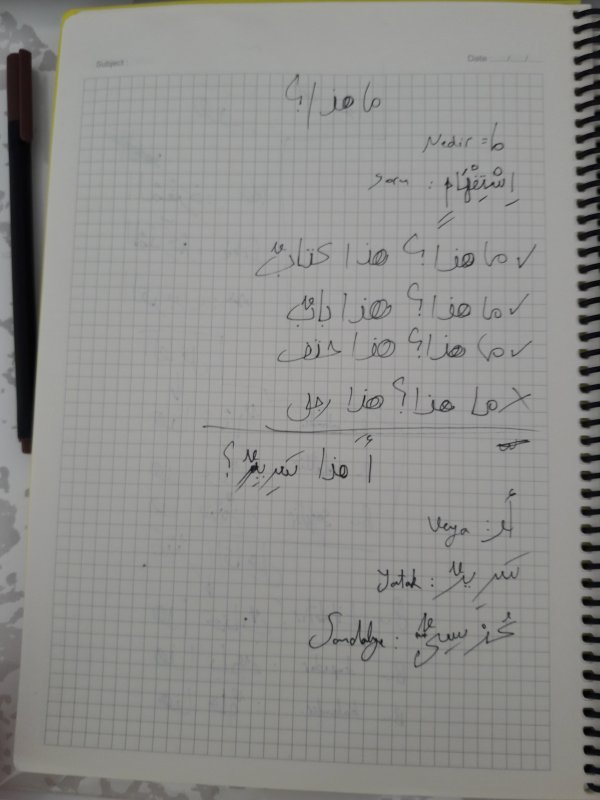 Subject
Date / /
ما هذا؟
ما = Nedir
اِسْتِفْهَام : Soru
✓ ما هذا؟ هذا كتابٌ
✓ ما هذا؟ هذا بابٌ
✓ ما هذا؟ هذا
✗ ما هذا؟ هذا رجل
أَ هذا سَرِيرٌ؟
أَمْ : Veya
سَرِيرٌ : Yatak
كُرْسِىٌّ : Sandalye